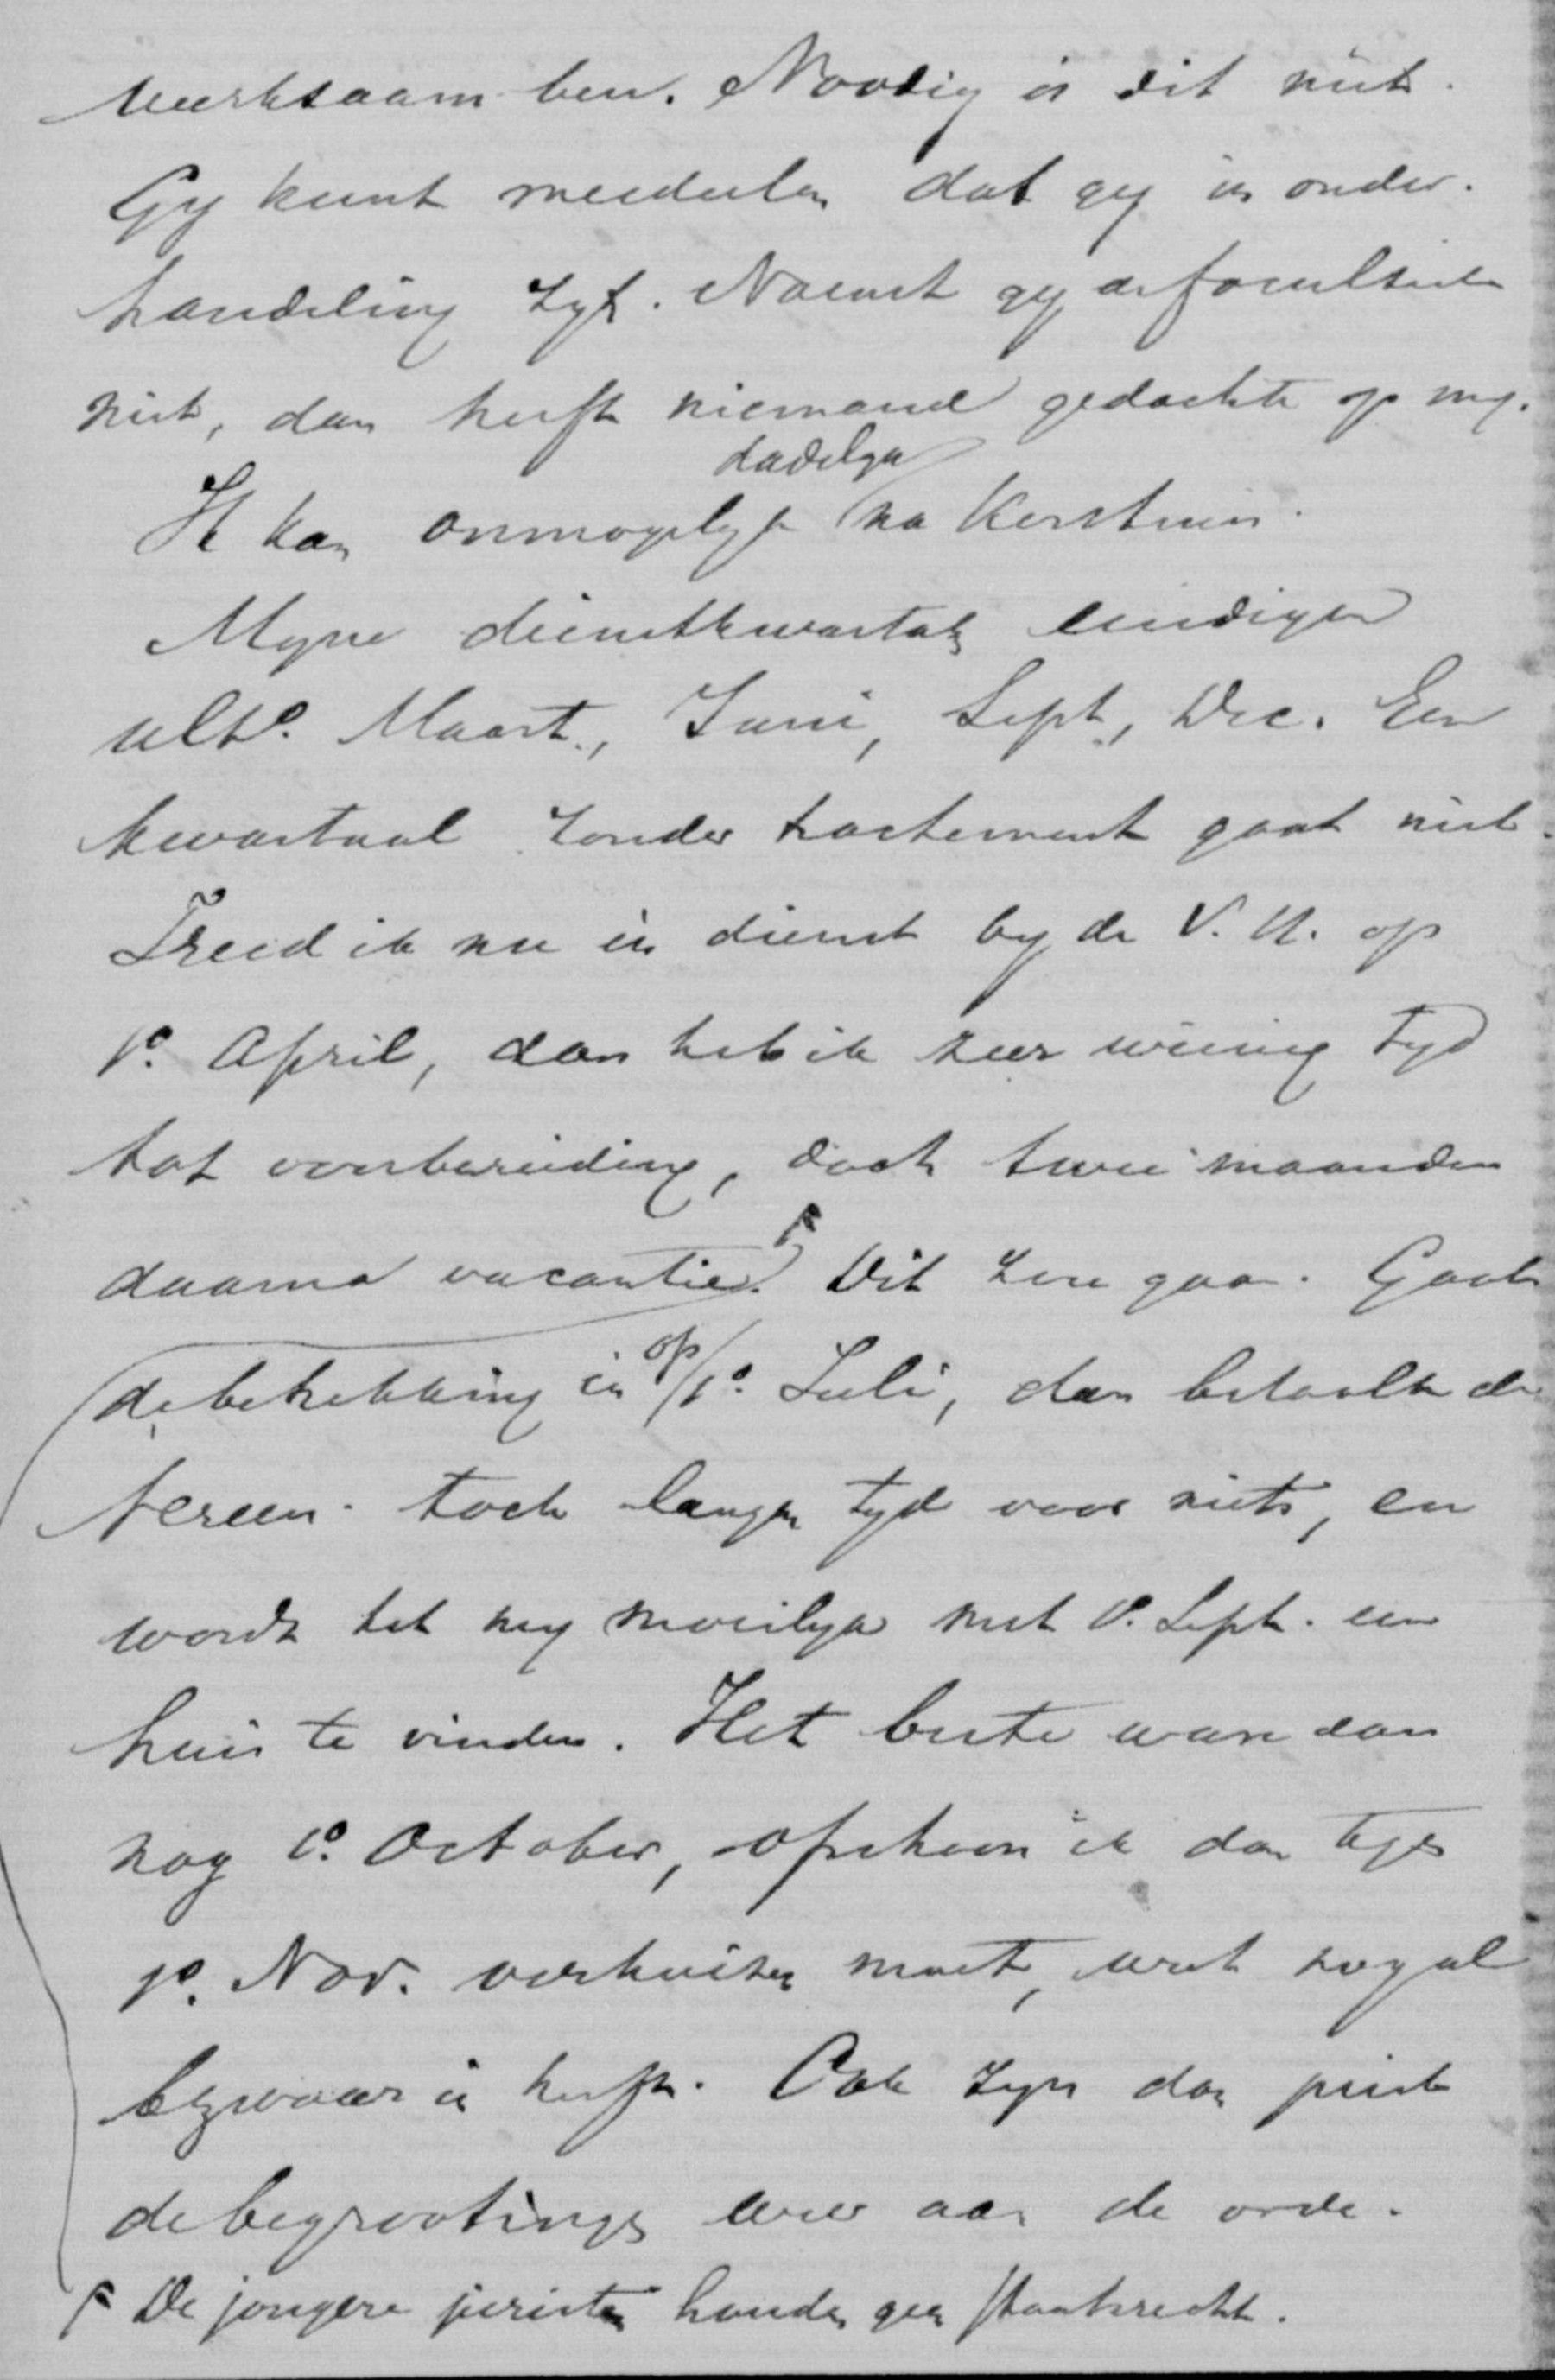 werkzaam ben. Noodig is dit niet.
Gy kunt meedeelen dat gy in onder-
handeling zyt. Noemt gy de faculteit
niet, dan heeft niemand gedachte op my.
dadelyk
Ik kan onmogelyk na Kerstmis.
Myne dienstkwartalen eindigen
ulto. Maart., Juni, Sept., Dec. Een
kwartaal zonder tractement gaat niet.
Treed ik nu in dienst by de V.U. op
1o. April, dan heb ik zeer weinig tyd
tot voorbereiding, doch twee maanden
daarna vacantie. Dit zou gaan. Gaat
op
de betrekking in 1o. Juli, dan betaalt de
Vereen. toch langen tyd voor niets, en
wordt het my moeilyk met 1o. Sept. een
huis te vinden. Het beste ware dan
nog 1o. October, ofschoon ik dan tegen
1o. Nov. verhuizen moet, wat nogal
bezwaar in heeft. Ook zyn dan juist
de begrootingen weer aan de orde.
De jongere juristen houden geen staatsrecht.